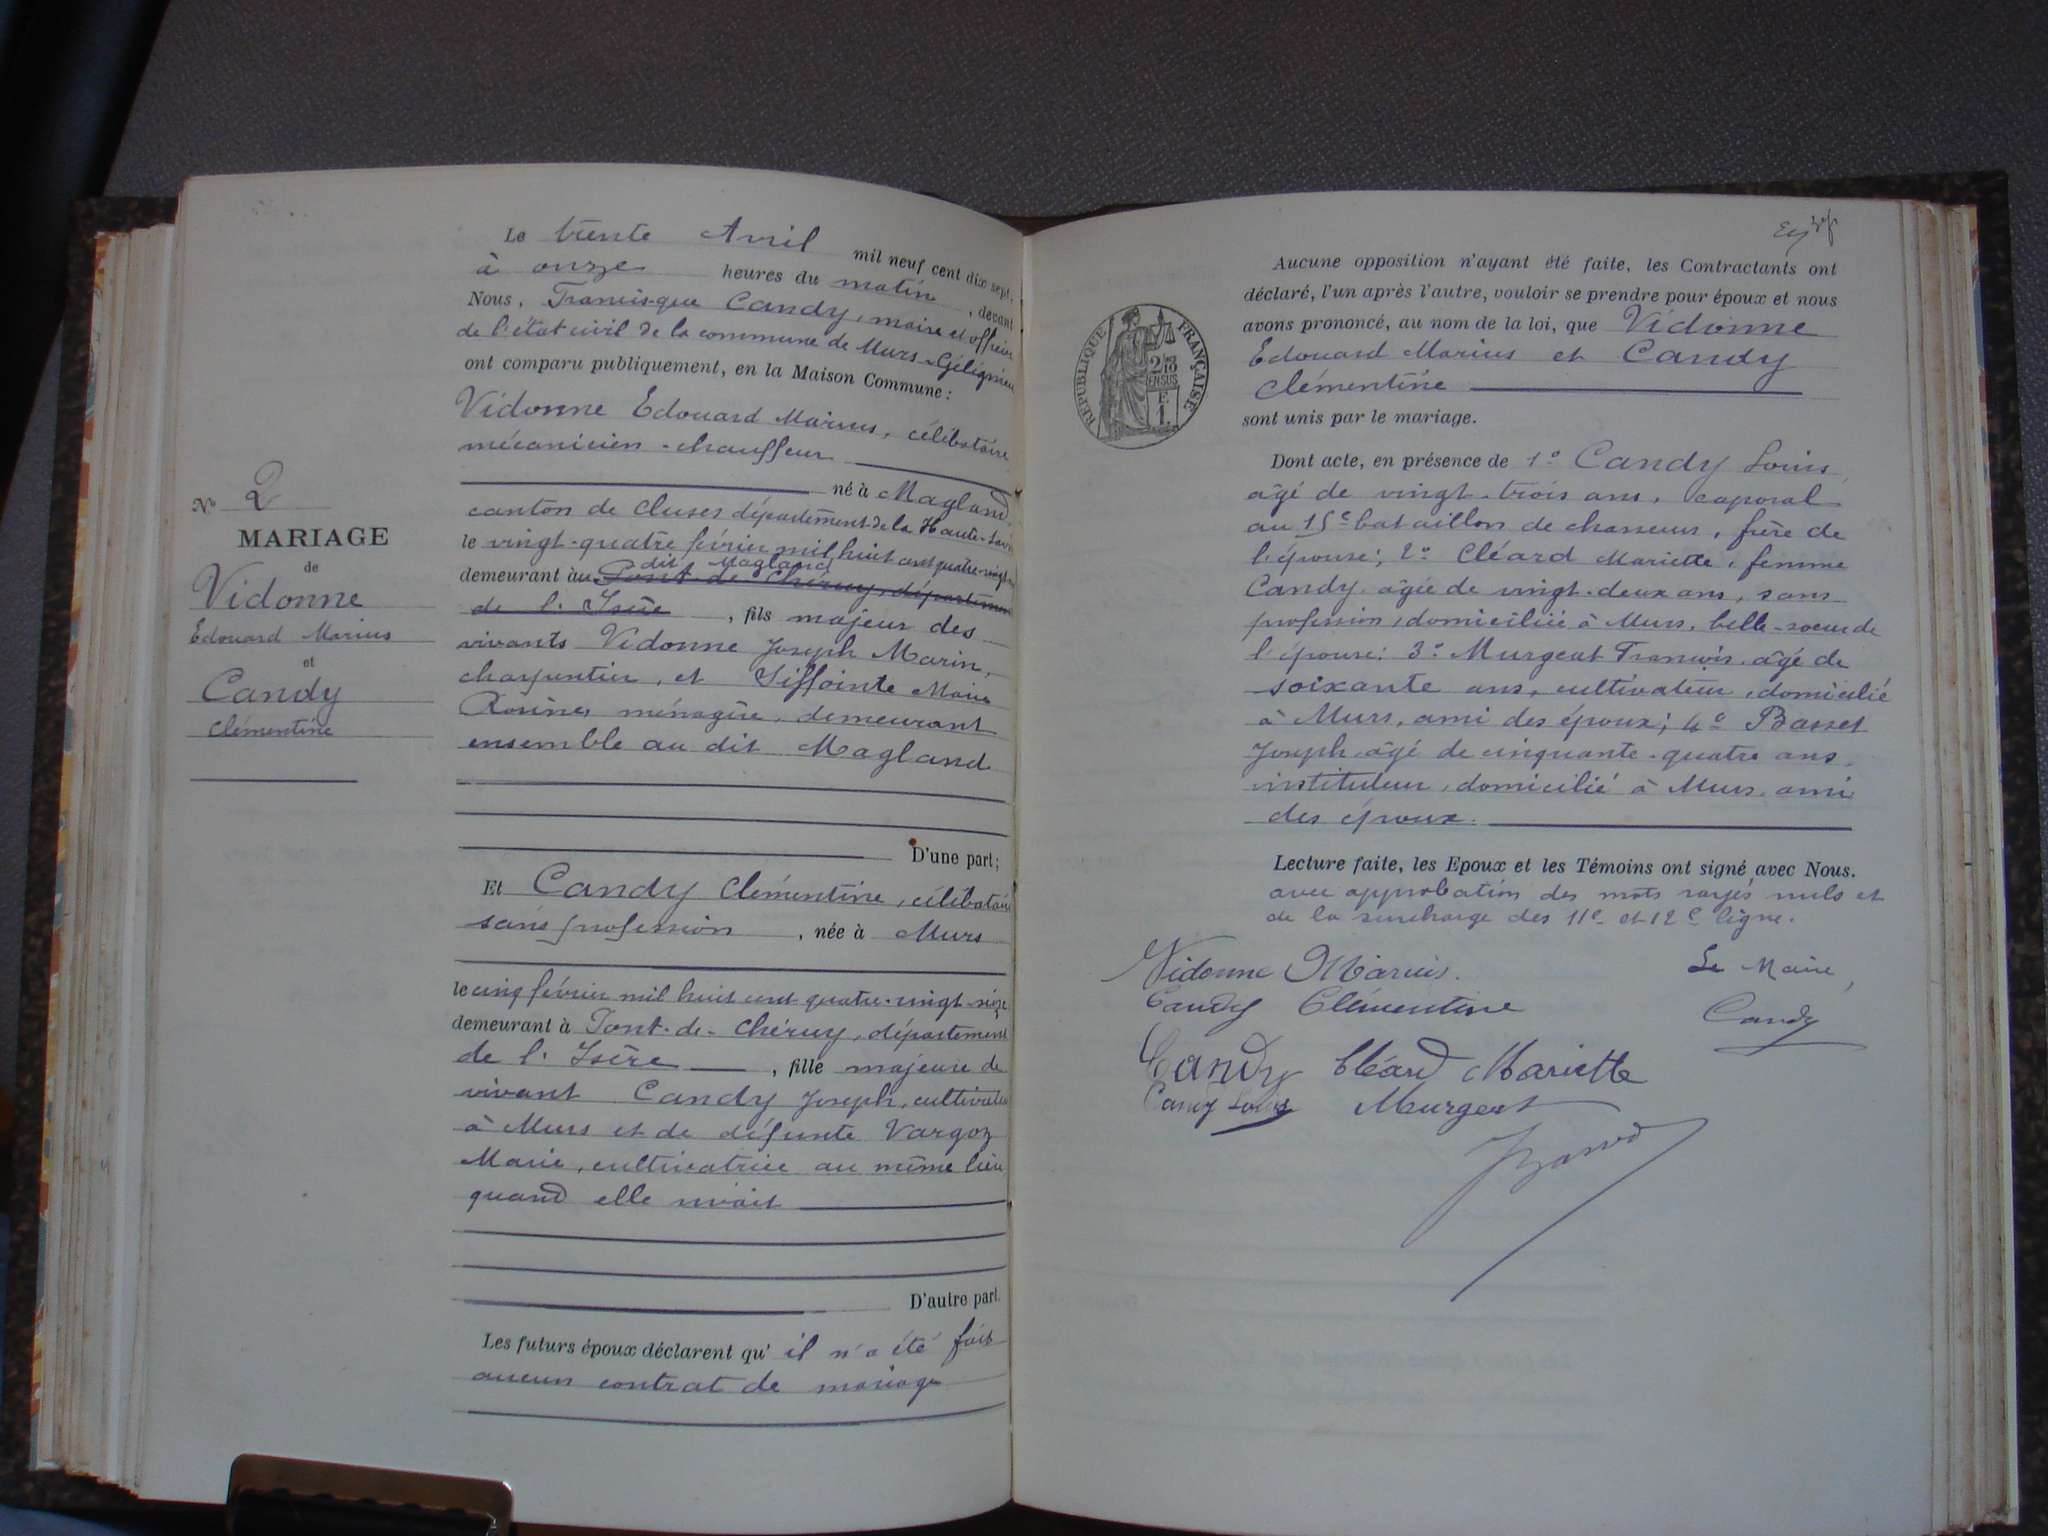 Le trente Avril mil neuf cent dix sept,
à onze heures du matin, devant
Nous, Francisque Candy, maire et officier
de l'état civil de la commune de Murs-Gélignieux
ont comparu publiquement, en la Maison Commune :
Vidonne Edouard Marius, célibataire
mécanicien-chauffeur
né à Magland,
canton de Cluses département de la Haute-Savoie
le vingt-quatre février mil huit cent quatre-vingt
dit Magland
demeurant au Pont-de-Chéruy, département
de l'Isère, fils majeur des
vivants Vidonne Joseph Marin,
charpentier, et Siffointe Marie
Rosine, ménagère, demeurant
ensemble au dit Magland
D'une part;
Et Candy Clémentine, célibataire
sans profession, née à Murs
le cinq février mil huit cent quatre-vingt-seize
demeurant à Pont-de-Chéruy, département
de l'Isère, fille majeure de
vivant Candy Joseph, cultivateur
à Murs et de défunte Vargoz
Marie, cultivatrice au même lieu
quand elle vivait
D'autre part.
Les futurs époux déclarent qu'il n'a été fait
aucun contrat de mariage
Nº 2
MARIAGE
de
Vidonne
Edouard Marius
et
Candy
Clémentine
Aucune opposition n'ayant été faite, les Contractants ont
déclaré, l'un après l'autre, vouloir se prendre pour époux et nous
avons prononcé, au nom de la loi, que Vidonne
Edouard Marius et Candy
Clémentine
sont unis par le mariage.
RÉPUBLIQUE FRANÇAISE
2/10
EN SUS
F.
1.
Dont acte, en présence de 1º Candy Louis
âgé de vingt-trois ans, caporal
au 15e bataillon de chasseurs, frère de
l'épouse; 2º Cléard Mariette, femme
Candy âgée de vingt-deux ans, sans
profession, domiciliée à Murs, belle-soeur de
l'épouse; 3º Murgeat François âgé de
soixante ans, cultivateur, domicilié
à Murs, ami des époux; 4º Basset
Joseph âgé de cinquante-quatre ans
instituteur, domicilié à Murs ami
des époux.
Lecture faite, les Epoux et les Témoins ont signé avec Nous.
avec approbation des mots rayés nuls et
de la surcharge des 11e et 12e ligne.
Vidonne Marius. Le Maire,
Candy Clémentine Candy
Candy Cléard Mariette
Candy Louis Murgeat